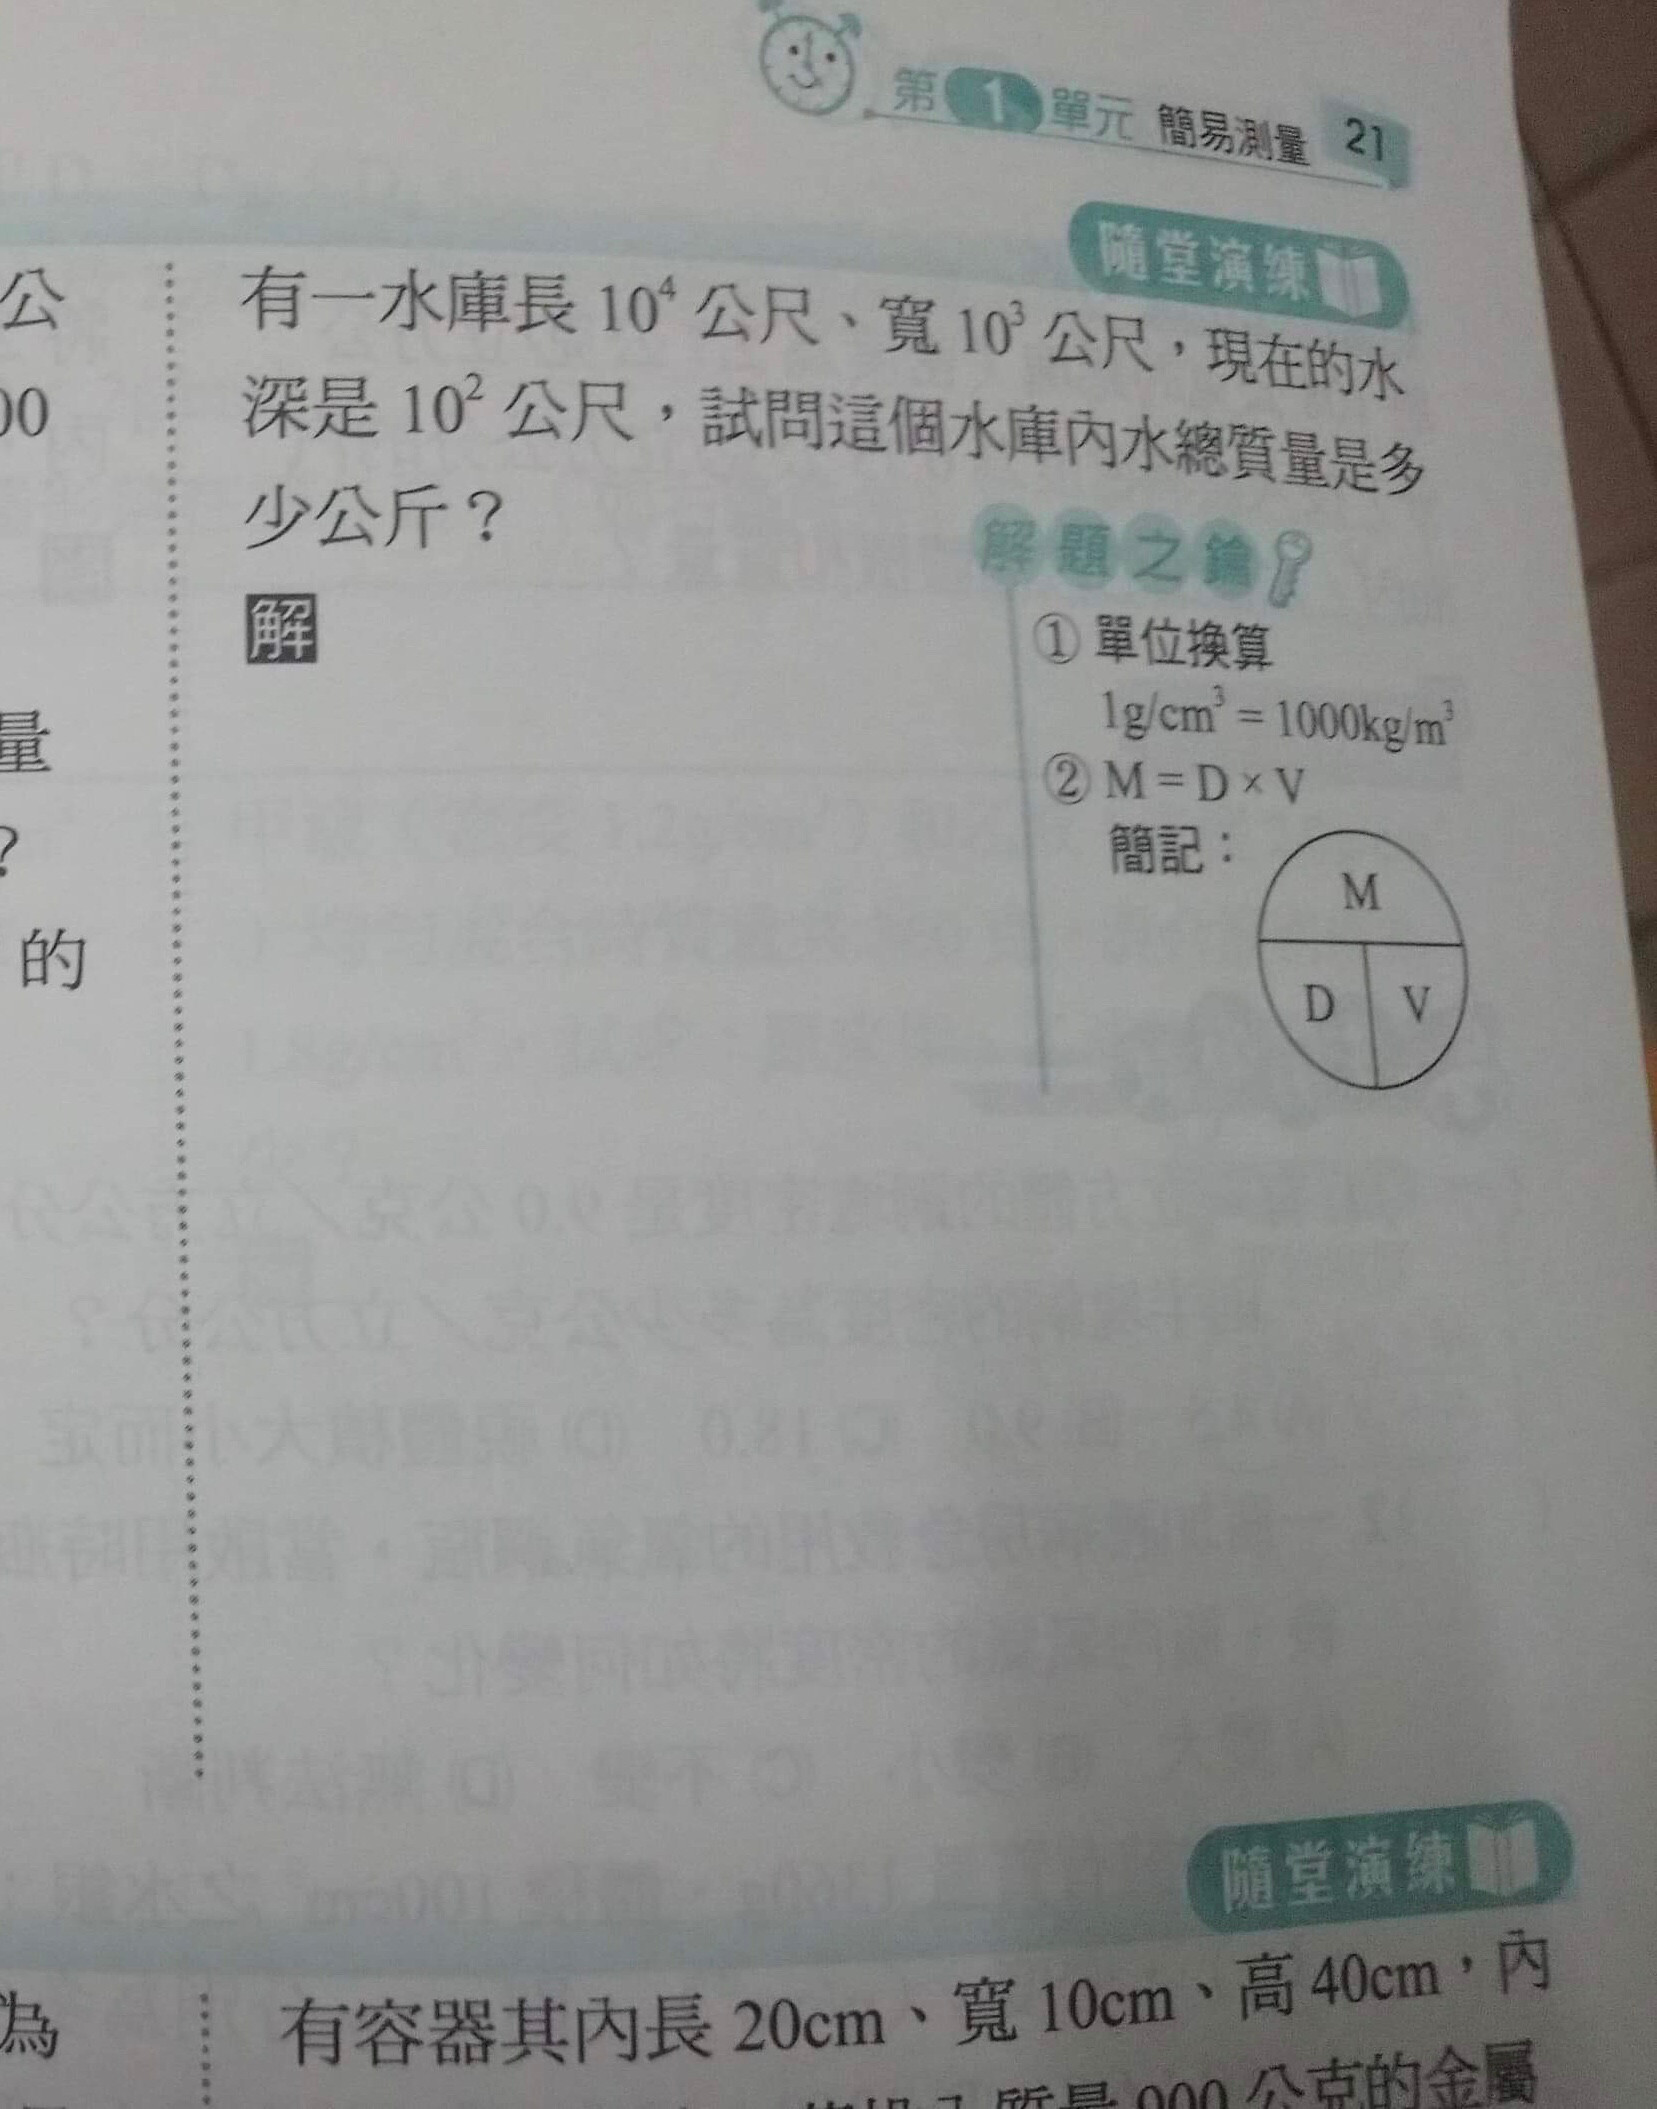 第1單元 簡易測量 21
隨堂演練
有一水庫長 10⁴ 公尺、寬 10³ 公尺，現在的水
深是 10² 公尺，試問這個水庫內水總質量是多
少公斤？
解
解題之鑰
① 單位換算
1g/cm³ = 1000kg/m³
② M = D × V
簡記：
M
D V
公
00
量
？
的
隨堂演練
有容器其內長 20cm、寬 10cm、高 40cm，內
質量 900 公克的金屬
為